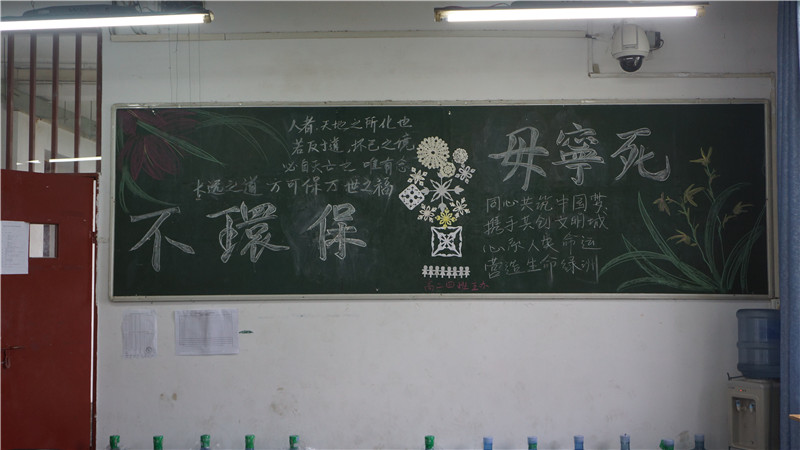 人者、天地之所化也
若反于道,坏己之境
必自灭亡之 唯有念
长远之道 方可保万世之福
不環保
毋寧死
同心共筑中国梦
携手共创文明城
心系人类命运
营造生命绿洲
高二四班宣